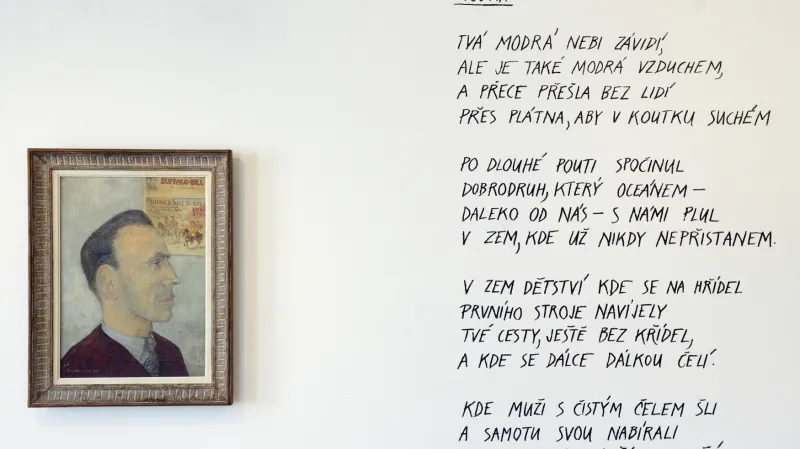 TVÁ MODRÁ NEBI ZÁVIDÍ,
ALE JE TAKÉ MODRÁ VZDUCHEM,
A PŘECE PŘEŠLA BEZ LIDÍ
PŘES PLÁTNA, ABY V KOUTKU SUCHÉM
PO DLOUHÉ POUTI SPOČINUL
DOBRODRUH, KTERÝ OCEÁNEM –
DALEKO OD NÁS – S NÁMI PLUL
V ZEM, KDE UŽ NIKDY NEPŘISTANEM.
V ZEM DĚTSTVÍ KDE SE NA HŘÍDEL
PRVNÍHO STROJE NAVÍJELY
TVÉ CESTY, JEŠTĚ BEZ KŘÍDEL,
A KDE SE DÁLCE DÁLKOU ČELÍ.
KDE MUŽI S ČISTÝM ČELEM ŠLI
A SAMOTU SVOU NABÍRALI
BUFFALO BILL